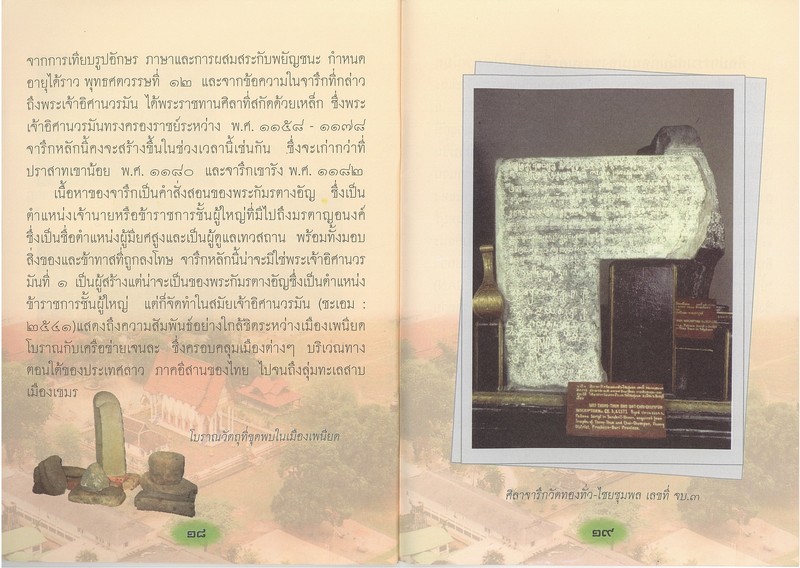 จากการเทียบรูปอักษร ภาษาและการผสมสระกับพยัญชนะ กำหนด
อายุได้ราว พุทธศตวรรษที่ ๑๒ และจากข้อความในจารึกที่กล่าว
ถึงพระเจ้าอิศานวรมัน ได้พระราชทานศิลาที่สกัดด้วยเหล็ก ซึ่งพระ
เจ้าอิศานวรมันทรงครองราชย์ระหว่าง พ.ศ. ๑๑๕๘ - ๑๑๗๘
จารึกหลักนี้คงจะสร้างขึ้นในช่วงเวลานี้เช่นกัน ซึ่งจะเก่ากว่าที่
ปราสาทเขาน้อย พ.ศ. ๑๑๘๐ และจารึกเขารัง พ.ศ. ๑๑๘๒
เนื้อหาของจารึกเป็นคำสั่งสอนของพระกัมรตางอัญ ซึ่งเป็น
ตำแหน่งเจ้านายหรือข้าราชการชั้นผู้ใหญ่ที่มีไปถึงมรตาญอนงค์
ซึ่งเป็นชื่อตำแหน่งผู้มียศสูงและเป็นผู้ดูแลเทวสถาน พร้อมทั้งมอบ
สิ่งของและข้าทาสที่ถูกลงโทษ จารึกหลักนี้น่าจะมิใช่พระเจ้าอิศานวร
มันที่ ๑ เป็นผู้สร้างแต่น่าจะเป็นของพระกัมรตางอัญซึ่งเป็นตำแหน่ง
ข้าราชการชั้นผู้ใหญ่ แต่ก็จัดทำในสมัยเจ้าอิศานวรมัน (ชะเอม :
๒๕๔๑)แสดงถึงความสัมพันธ์อย่างใกล้ชิดระหว่างเมืองเพนียด
โบราณกับเครือข่ายเจนละ ซึ่งครอบคลุมเมืองต่างๆ บริเวณทาง
ตอนใต้ของประเทศลาว ภาคอิสานของไทย ไปจนถึงลุ่มทะเลสาบ
เมืองเขมร
โบราณวัตถุที่ขุดพบในเมืองเพนียด
๑๘
ศิลาจารึกวัดทองทั่ว-ไชยชุมพล เลขที่ จบ.๓
๑๙